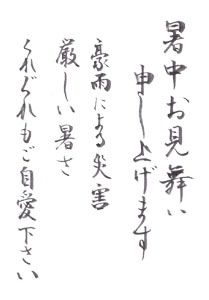 暑中お見舞い
申し上げます
豪雨による災害
厳しい暑さ
くれぐれもご自愛下さい